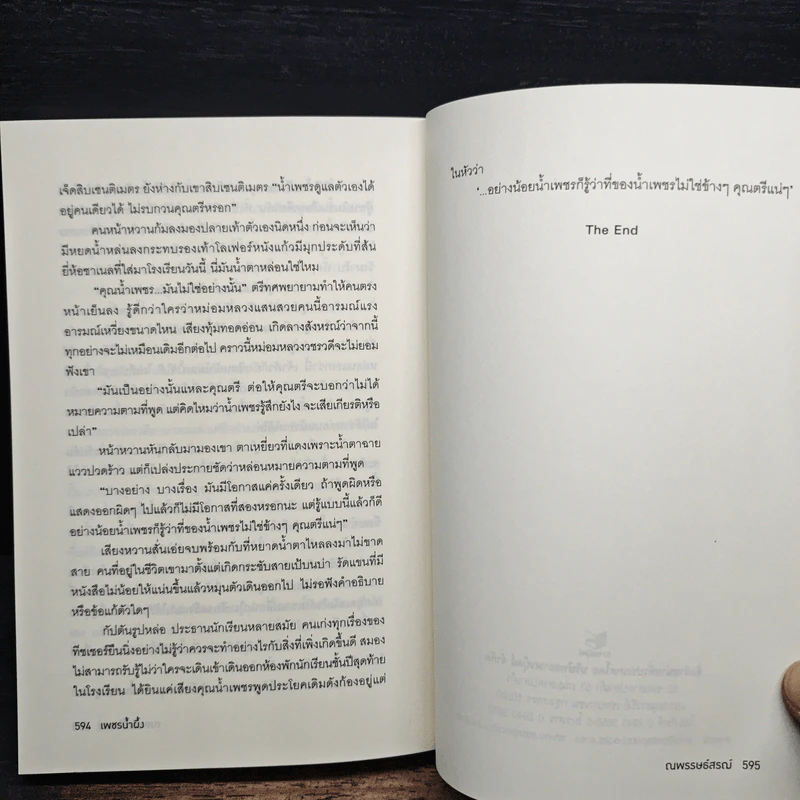 เจ็ดสิบเซนติเมตร ยังห่างกับเขาสิบเซนติเมตร “น้ำเพชรดูแลตัวเองได้
อยู่คนเดียวได้ ไม่รบกวนคุณตรีหรอก”
คนหน้าหวานก้มลงมองปลายเท้าตัวเองนิดหนึ่ง ก่อนจะเห็นว่า
มีหยดน้ำหล่นลงกระทบรองเท้าโลเฟอร์หนังแก้วมีมุกประดับที่ส้น
ยี่ห้อชาเนลที่ใส่มาโรงเรียนวันนี้ นี่มันน้ำตาหล่อนใช่ไหม
“คุณน้ำเพชร...มันไม่ใช่อย่างนั้น” ตรีทศพยายามทำให้คนตรง
หน้าเย็นลง รู้ดีกว่าใครว่าหม่อมหลวงแสนสวยคนนี้อารมณ์แรง
อารมณ์เหวี่ยงขนาดไหน เสียงทุ้มทอดอ่อน เกิดลางสังหรณ์ว่าจากนี้
ทุกอย่างจะไม่เหมือนเดิมอีกต่อไป คราวนี้หม่อมหลวงวชรวดีจะไม่ยอม
ฟังเขา
“มันเป็นอย่างนั้นแหละคุณตรี ต่อให้คุณตรีจะบอกว่าไม่ได้
หมายความตามที่พูด แต่คิดไหมว่าน้ำเพชรรู้สึกยังไง จะเสียเกียรติหรือ
เปล่า”
หน้าหวานหันกลับมามองเขา ตาเหยี่ยวที่แดงเพราะน้ำตาฉาย
แววปวดร้าว แต่ก็เปล่งประกายชัดว่าหล่อนหมายความตามที่พูด
“บางอย่าง บางเรื่อง มันมีโอกาสแค่ครั้งเดียว ถ้าพูดผิดหรือ
แสดงออกผิดๆ ไปแล้วก็ไม่มีโอกาสที่สองหรอกนะ แต่รู้แบบนี้แล้วก็ดี
อย่างน้อยน้ำเพชรก็รู้ว่าที่ของน้ำเพชรไม่ใช่ข้างๆ คุณตรีแน่ๆ”
เสียงหวานสั่นเอ่ยจบพร้อมกับที่หยาดน้ำตาไหลลงมาไม่ขาด
สาย คนที่อยู่ในชีวิตเขามาตั้งแต่เกิดกระชับสายเป้บนบ่า รัดแขนที่มี
หนังสือไม่น้อยให้แน่นขึ้นแล้วหมุนตัวเดินออกไป ไม่รอฟังคำอธิบาย
หรือข้อแก้ตัวใดๆ
กัปตันรูปหล่อ ประธานนักเรียนหลายสมัย คนเก่งทุกเรื่องของ
ทีชเชอร์ยืนนิ่งอย่างไม่รู้ว่าควรจะทำอย่างไรกับสิ่งที่เพิ่งเกิดขึ้นดี สมอง
ไม่สามารถรับรู้ไม่ว่าใครจะเดินเข้าเดินออกห้องพักนักเรียนชั้นปีสุดท้าย
ในโรงเรียน ได้ยินแค่เสียงคุณน้ำเพชรพูดประโยคเดิมดังก้องอยู่แต่
594 เพชรน้ำผึ้ง
ในหัวว่า
‘...อย่างน้อยน้ำเพชรก็รู้ว่าที่ของน้ำเพชรไม่ใช่ข้างๆ คุณตรีแน่ๆ’
The End
ณพรรษธ์สรณ์ 595